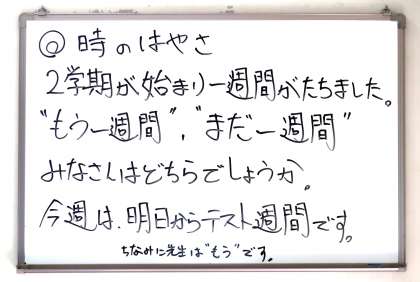 ◎ 時のはやさ
2学期が始まり一週間がたちました。
"もう一週間"、"まだ一週間"
みなさんはどちらでしょうか。
今週は、明日からテスト週間です。
ちなみに先生は"もう"です。